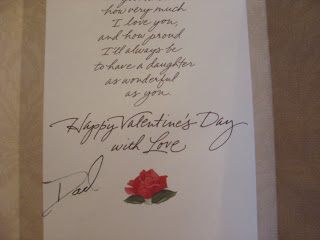 how very much
I love you,
and how proud
I'll always be
to have a daughter
as wonderful
as you.
Happy Valentine's Day
with Love
Dad